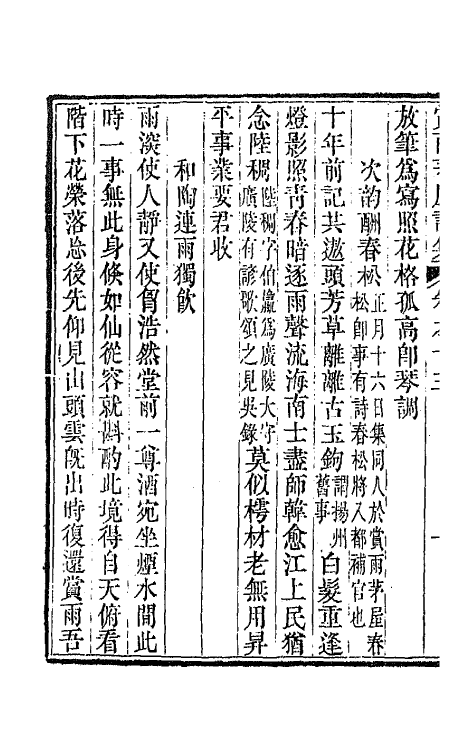 放筆爲寫照花格孤高卽琴調
次韵酬春松正月十六日集同人於賞雨茅屋春松卽事有詩春松將入都補官也
十年前記共遨頭芳草離離古玉鉤謂揚州舊事白髮重逢
燈影照靑春暗逐雨聲流海南士盡師韓愈江上民猶
念陸稠陸稠字伯鸁爲廣陵大守廣陵有諺歌頌之見吳錄莫似樗材老無用昇
平事業要君收
和陶連雨獨飮
雨淡使人靜又使胷浩然堂前一尊酒宛坐煙水間此
時一事無此身倏如仙從容就斟酌此境得自天俯看
階下花榮落忩後先仰見山頭雲旣出時復還賞雨吾